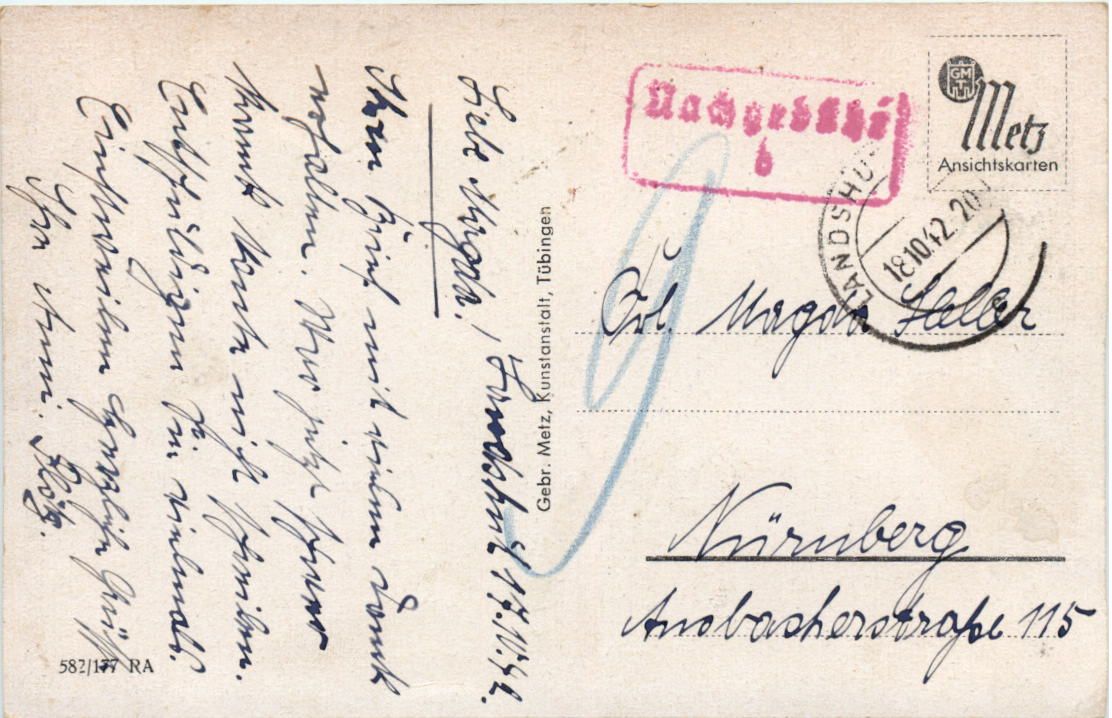 Liebe Magda! Landshut 17.10.42.
Ihren Brief mit vielem Dank
erhalten. War jetzt schwer
krank konnte nicht schreiben.
Entschuldigen Sie vielmals.
Einstweilen herzliche Grüße
Ihre
Gebr. Metz, Kunstanstalt, Tübingen
582/177 RA
Nachgebühr
b
GM
T
Metz
Ansichtskarten
LANDSHU
18.10.42.20
Frl. Magda Haller
Nürnberg
Ansbacherstraße 115